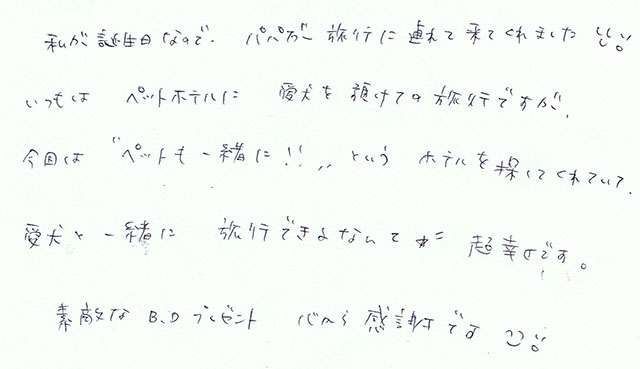 私が誕生日なので、パパが旅行に連れて来てくれました
いつもは ペットホテルに 愛犬を預けての旅行ですが、
今回は "ペットも一緒に!!„ という ホテルを探してくれていて、
愛犬と一緒に 旅行できるなんて 超幸せです。
素敵な B.Dプレゼント 心から感謝です